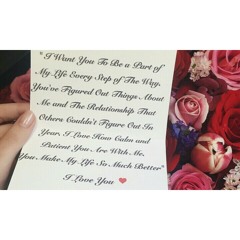 "I Want You To Be a Part of
My Life Every Step of The Way.
You've Figured Out Things About
Me and The Relationship That
Others Couldn't Figure Out In
Year. I Love How Calm and
Patient You Are With Me.
You Make My Life So Much Better"
I Love You ❤